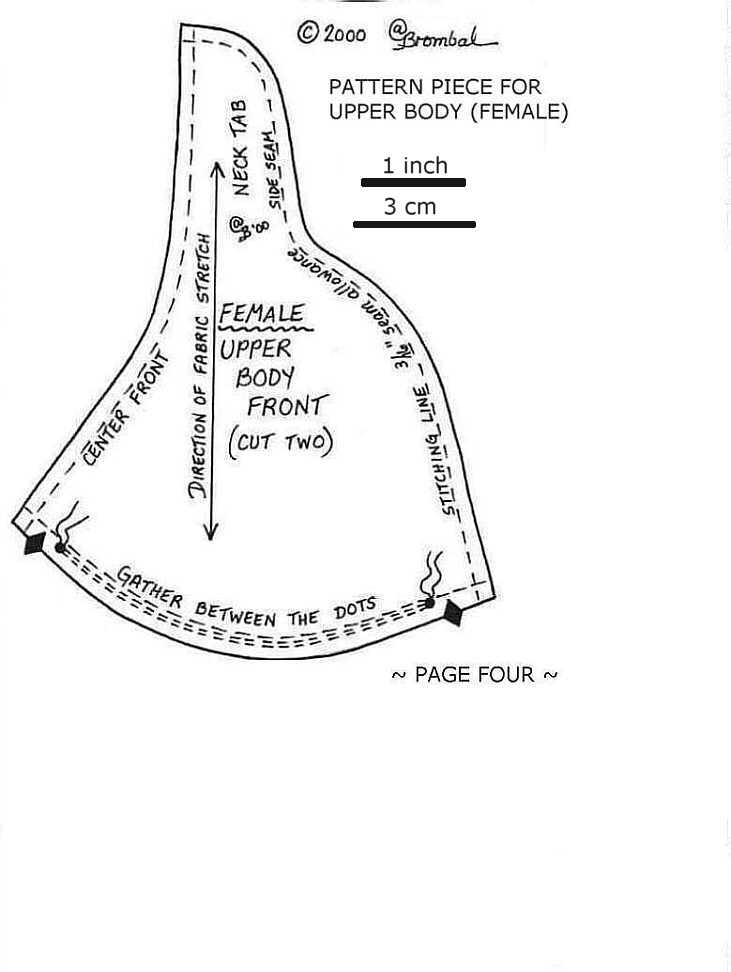 © 2000 @Brombal
PATTERN PIECE FOR
UPPER BODY (FEMALE)
1 inch
3 cm
NECK TAB
SIDE SEAM
@B.'00
3/16" seam allowance
DIRECTION OF FABRIC STRETCH
FEMALE
UPPER
BODY
FRONT
(CUT TWO)
CENTER FRONT
STITCHING LINE
GATHER BETWEEN THE DOTS
~ PAGE FOUR ~